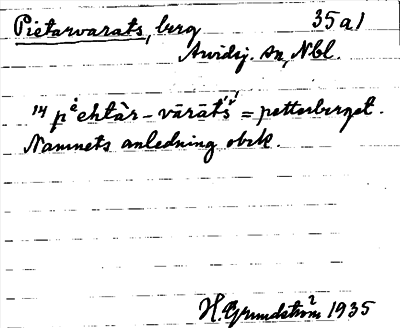 Pietarvarats, berg 35a1
Arvidsj. sn, Nbl.
14 pᵉ̀ehtàr-vārāt́š́ = petterberget.
Namnets anledning obek.
H. Grundström 1935